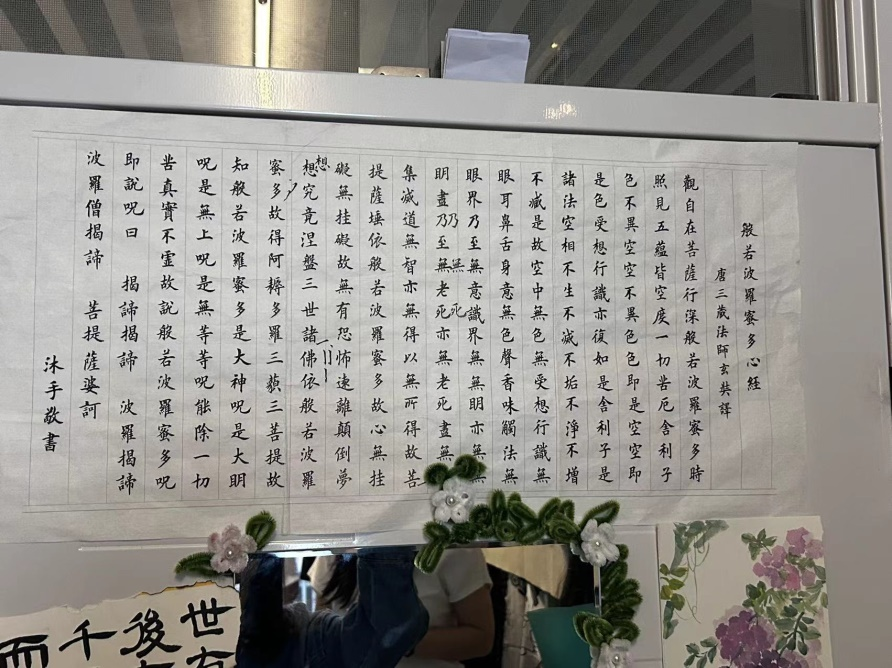 般若波羅蜜多心經
唐三藏法師玄奘譯
觀自在菩薩行深般若波羅蜜多時
照見五蘊皆空度一切苦厄舍利子
色不異空空不異色色即是空空即
是色受想行識亦復如是舍利子是
諸法空相不生不滅不垢不淨不增
不減是故空中無色無受想行識無
眼耳鼻舌身意無色聲香味觸法無
眼界乃至無意識界無無明亦無
乃無死
明盡乃至無老死亦無老死盡無
集滅道無智亦無得以無所得故菩
提薩埵依般若波羅蜜多故心無挂
礙無挂礙故無有恐怖遠離顛倒夢
想
想究竟涅盤三世諸佛依般若波羅
蜜多故得阿耨多羅三藐三菩提故
知般若波羅蜜多是大神呪是大明
呪是無上呪是無等等呪能除一切
苦真實不虛故說般若波羅蜜多呪
即說呪曰 揭諦揭諦 波羅揭諦
波羅僧揭諦 菩提薩婆訶
沐手敬書
世有
後
千
而